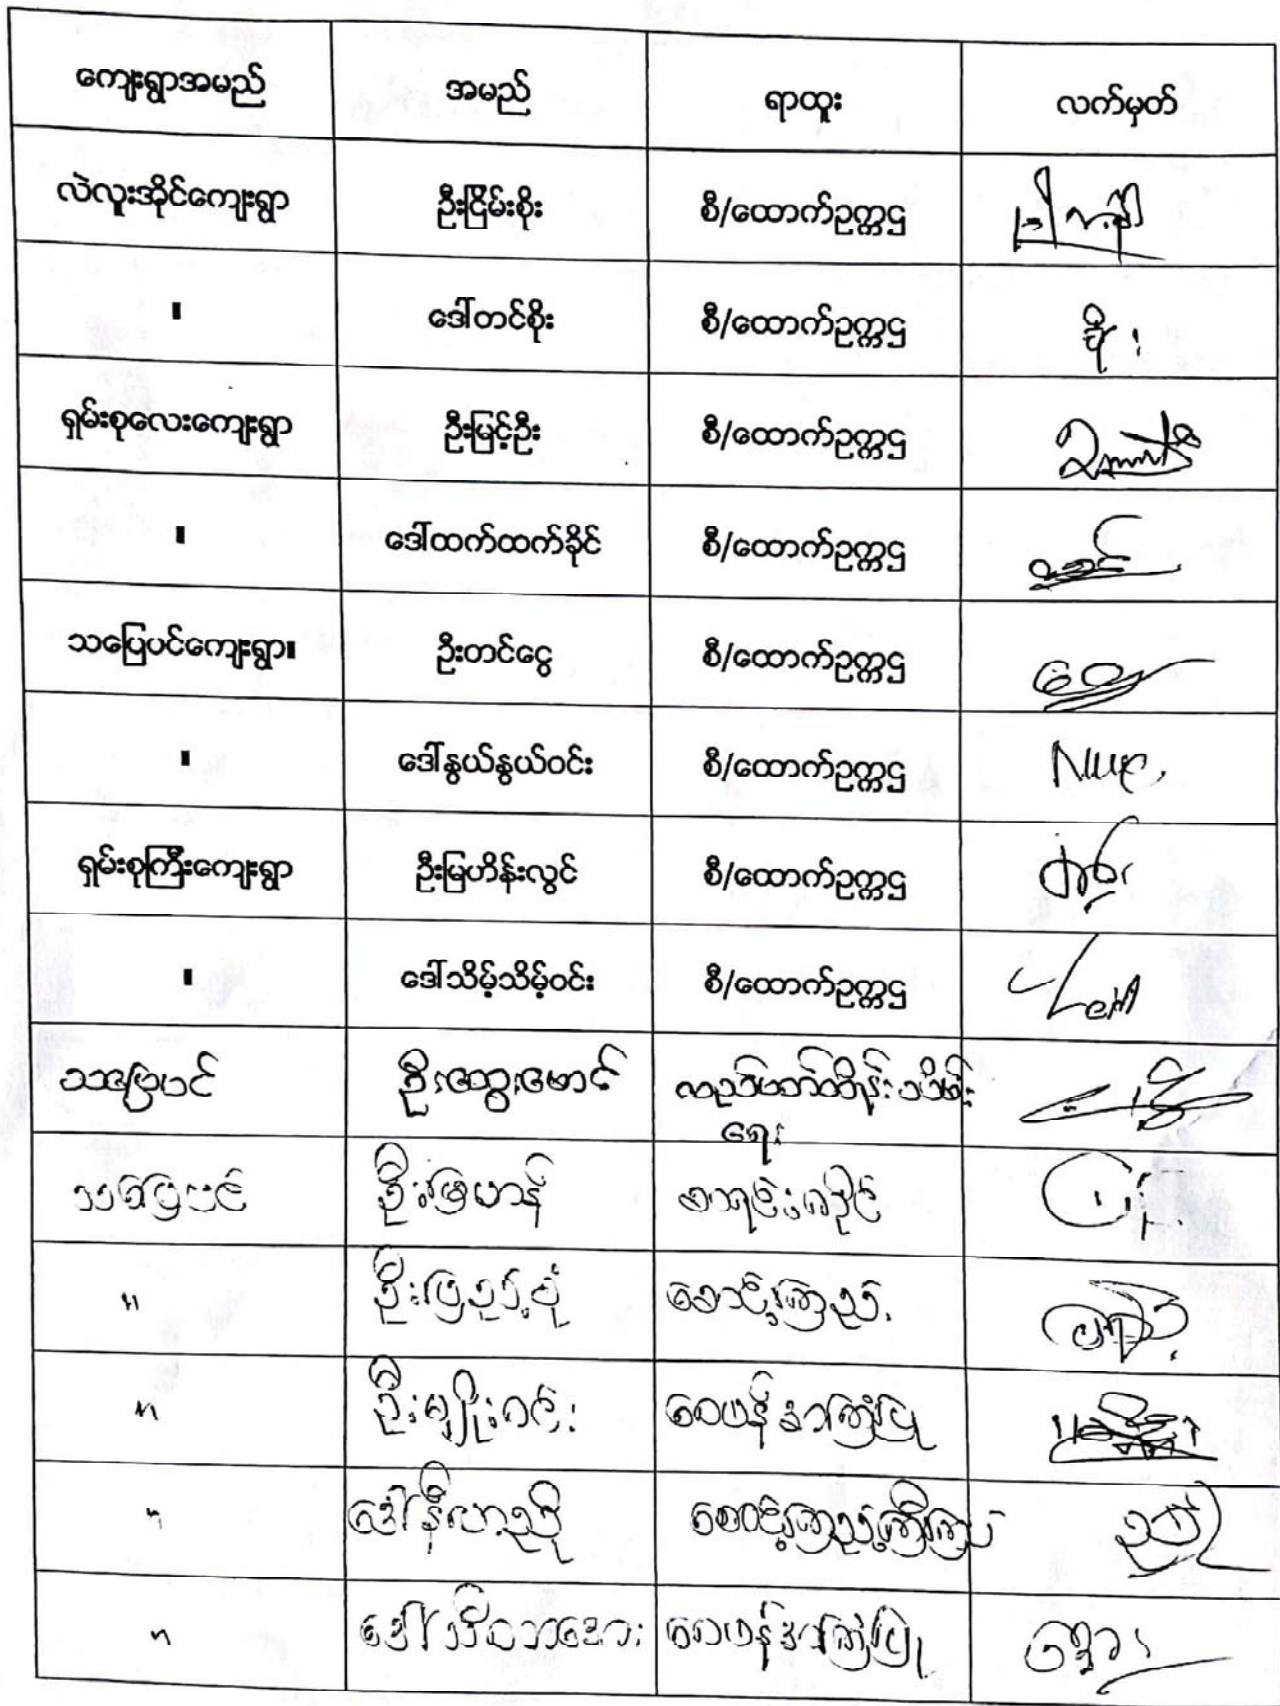 ကျေးရွာအမည် အမည် ရာထူး လက်မှတ်
လဲလူးအိုင်ကျေးရွာ ဦးငြိမ်းစိုး စီ/ထောက်ဥက္ကဌ
" ဒေါ်တင်စိုး စီ/ထောက်ဥက္ကဌ စိုး
ရှမ်းစုလေးကျေးရွာ ဦးမြင့်ဦး စီ/ထောက်ဥက္ကဌ
" ဒေါ်ထက်ထက်ခိုင် စီ/ထောက်ဥက္ကဌ
သပြေပင်ကျေးရွာ။ ဦးတင်ငွေ စီ/ထောက်ဥက္ကဌ
" ဒေါ်နွယ်နွယ်ဝင်း စီ/ထောက်ဥက္ကဌ
ရှမ်းစုကြီးကျေးရွာ ဦးမြဟိန်းလွင် စီ/ထောက်ဥက္ကဌ
" ဒေါ်သိမ့်သိမ့်ဝင်း စီ/ထောက်ဥက္ကဌ
သပြေပင် ဦးထွေးမောင်
ရေး
သပြေပင် ဦးမြဟန် စာရင်းကိုင်
" စောင့်ကြည့်
" ဦးမျိုးဝင်း ဝေဖန်အကြံပြု
" ဒေါ်နီလာညို စောင့်ကြည့်ကြီးကြပ်
" ဝေဖန်အကြံပြု